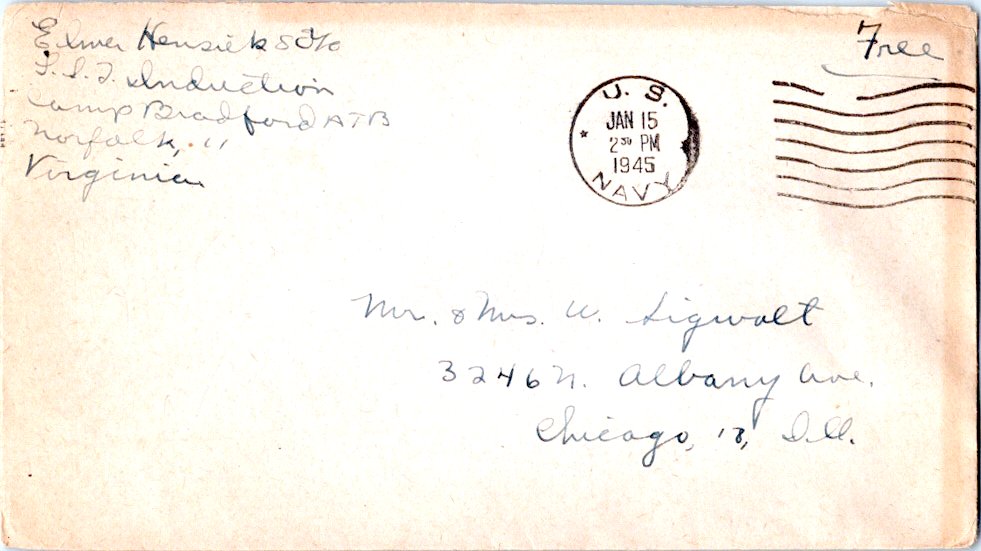 Elmer Hensiek S 2/c
L.S.T. Induction
Camp Bradford ATB
Norfolk, 11
Virginia
Free
U. S.
JAN 15
2 30 PM
1945
NAVY
Mr. & Mrs. W. Sigwalt
3246 N. Albany Ave.
Chicago, 18, Ill.